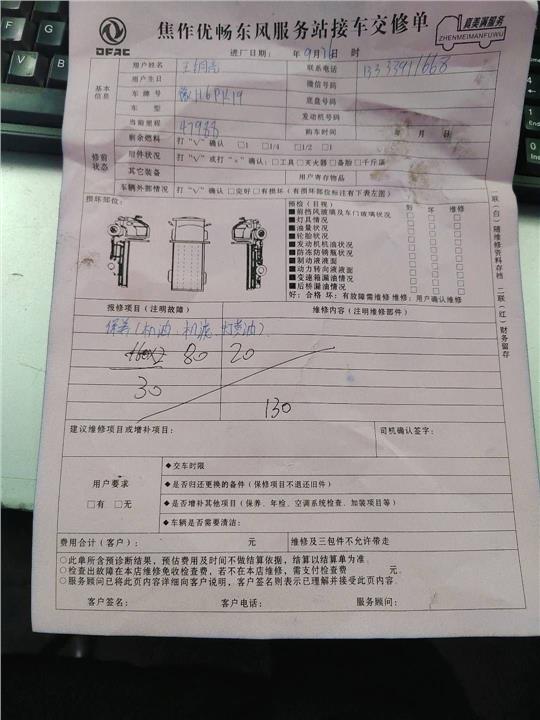 DFAC
焦作优畅东风服务站接车交修单
真美满服务
ZHENMEIMANFUWU
进厂日期: 年9月 日 时
基本信息
用户姓名 联系电话
用户生日 微信号码
车牌号 豫H6PK19 底盘号码
车 型 发动机号码
当前里程 47988 购车时间 年 月 日
修前状态
剩余燃料 打“√”确认 □1 □1/4 □1/2 □1
附件状况 打“√”或打“×”确认:□工具□灭火器□备胎□千斤顶
其它装备 用户寄存物品
车辆外部情况 打“√”确认 □完好□有损坏(有损坏部位标注有下表左图)
损坏部位: 预检(目视) 好 坏 维修
■前挡风玻璃及车门玻璃状况 □ □ □
■灯具情况 □ □ □
■油量状况 □ □ □
■轮胎状况 □ □ □
■发动机机油状况 □ □ □
■防冻防锈瓶状况 □ □ □
■制动液液面 □ □ □
■动力转向液液面 □ □ □
■变速箱漏油情况 □ □ □
■后桥漏油情况 □ □ □
好:合格 坏:有故障需维修 维修:用户确认维修
一联(白)随维修资料存档 二联(红)财务留存
报修项目(注明故障) 维修内容(注明维修部件)
保养(机油、机滤、打黄油)
80 20
30
130
建议维修项目或增补项目: 司机确认签字:
用户要求
□有 □无
◆交车时限
◆是否归还更换的备件(保修项目不退还旧件)
◆是否增补其他项目(保养、年检、空调系统检查、加装项目等)
◆车辆是否需要清洁:
费用合计(客户): 元 维修及三包件不允许带走
○此单所含预诊断结果,预估费用及时间不做结算依据,结算以结算单为准。
○检查出故障在本店维修免收检查费,若不在本店维修,需支付检查费 元。
○服务顾问已将此页内容详细向客户说明,客户签名则表示已理解并接受此页内容。
客户签名: 客户电话: 服务顾问: